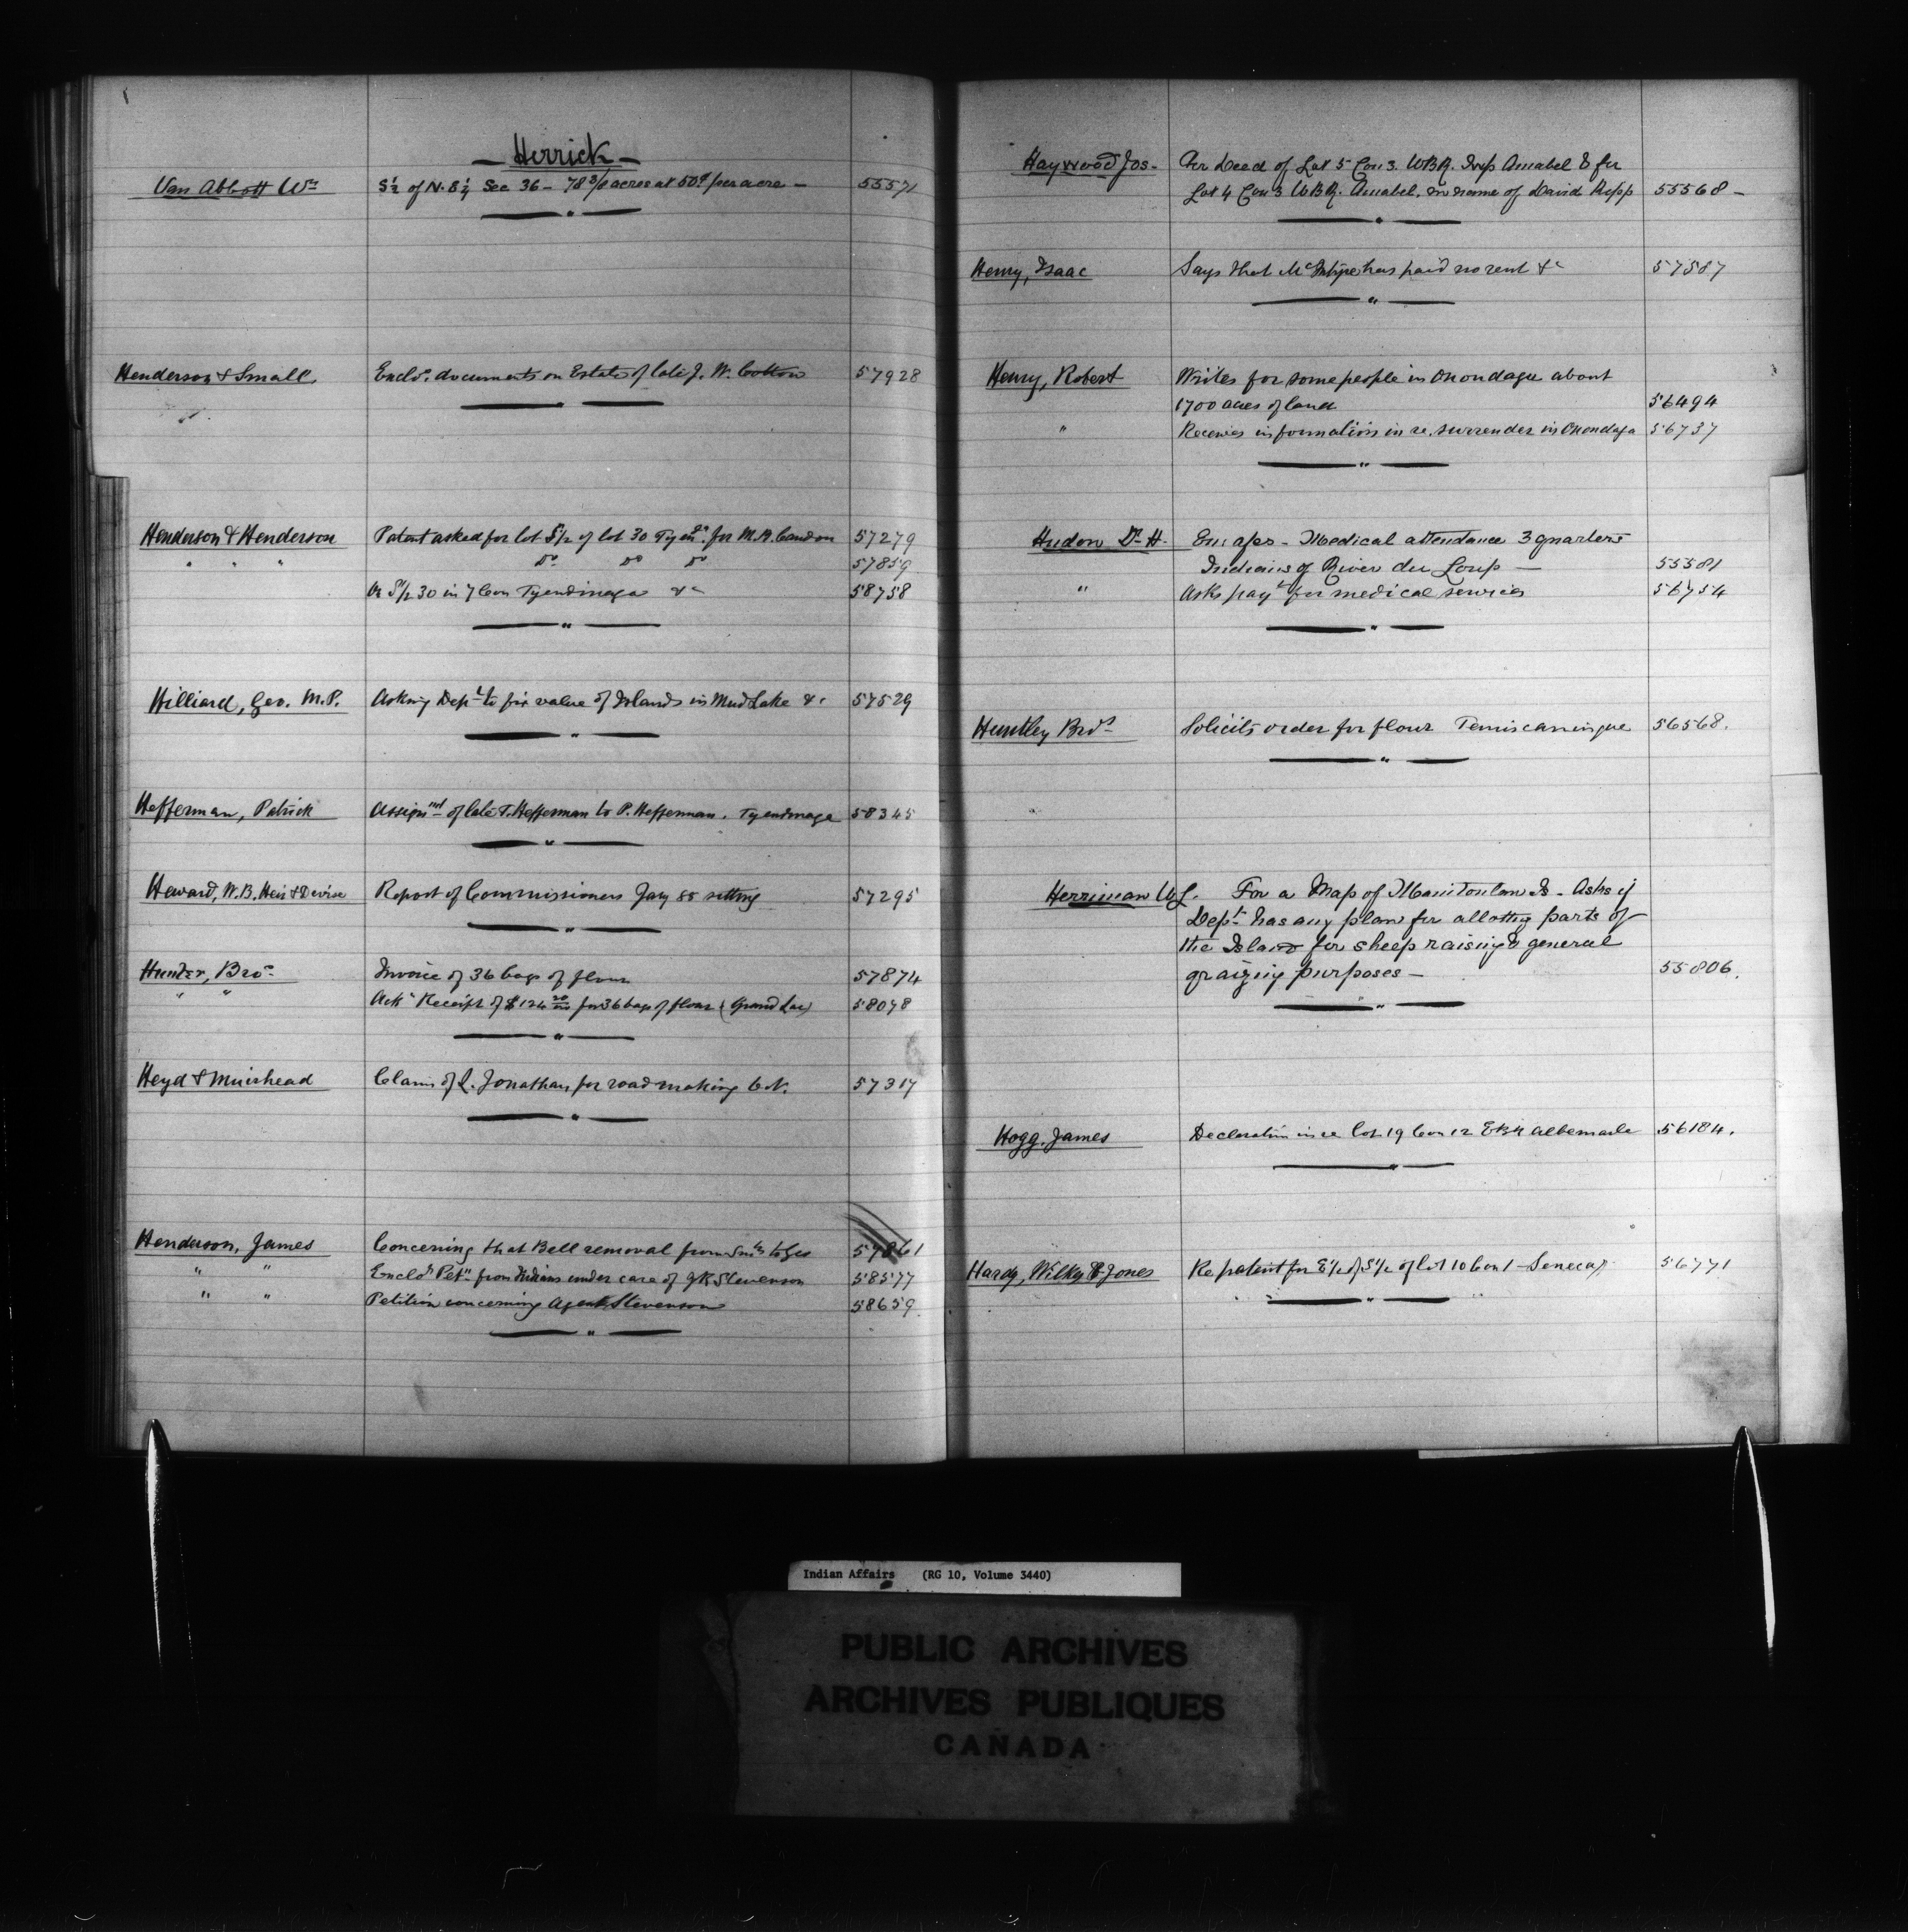 — Herrick —
Van Abbott Wm S½ of N.E¼ Sec 36 — 78 3/8 acres at 50¢ per acre — 55571
Henderson & Small Enclo. documents on Estate of late J. W. Cotton 57928
Henderson & Henderson Patent asked for lot S½ of lot 30 Tyenga. for M.B. Candon 57279
" " " Do Do Do 57859
Re S½ 30 in 7 Con Tyendinaga &c 58758
Hilliard, Geo. M.P. Asking Dept to fix value of Islands in Mud Lake &c 57529
Hefferman, Patrick Assignmt of late T. Hefferman to P. Hefferman. Tyendinaga 58345
Heward, W.B. Heir & Devise Report of Commissioners Jany 85 sitting 57295
Hunter, Bros Invoice of 36 bags of flour 57874
" " Ackg Receipt of $124 20/100 for 36 bags of flour (Grand Lac) 58078
Heyd & Muirhead Claim of L. Jonathan for road making 57317
Henderson, James Concerning that Bell removal from 57861
" " Enclog Petn from Indians under care of J.R. Stevenson 58577
" " Petition concerning Agent Stevenson 58659
Haywood Jos— For Deed of Lot 5 Con 3. WBR. Twp Amabel & for
Lot 4 Con 3 WBR. Amabel, in name of David Hepp 55568 —
Henry, Isaac Says that McIntyre has paid no rent &c 57587
Henry, Robert Writes for some people in Onondaga about
1700 acres of land 56494
" Receives information in re. surrender in Onondaga 56737
Hudon Dr H. Enc a/cs — Medical attendance 3 quarters
Indians of River du Loup — 55581
" Asks payt for medical services 56754
Huntley Bros Solicits order for flour Temiscamingue 56568.
Herriman W.L. For a Map of Manitoulan Is — Asks if
Dept has any plan for allotting parts of
the Island for sheep raising & general
graizing purposes — 55806.
Hogg, James Declaration in re lot 19 Con 12 EBR Albemarle 56184.
Hardy, Wilkes & Jones Re patent for E½ of S½ of lot 10 Con 1 — Seneca 56771
Indian Affairs (RG 10, Volume 3440)
PUBLIC ARCHIVES
ARCHIVES PUBLIQUES
CANADA